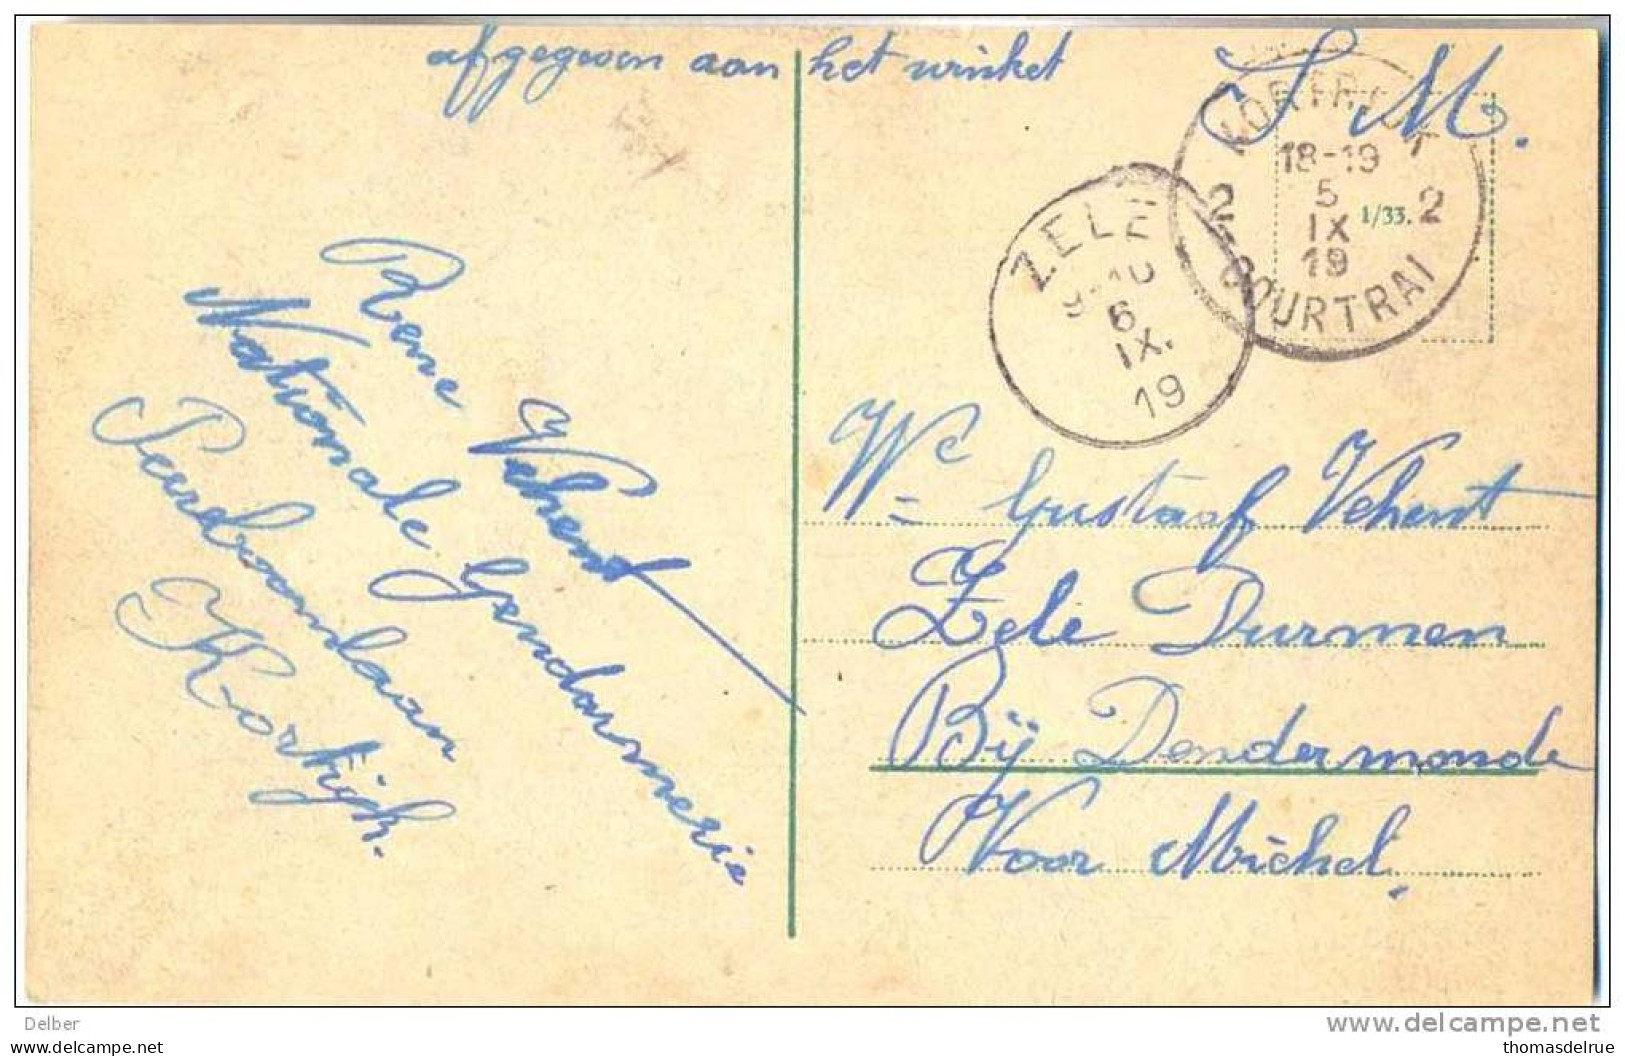 afgegeven aan het winket
S. M.
KORTRIJK
18-19
5
IX
19
2 2
COURTRAI
1/33.
ZELE
9-10
6
IX.
19
Rene Vehent
Nationale Gendarmerie
Peereboomlaan
Kortrijk.
We Gustaaf Vehent
Zele Durmen
Bij Dendermonde
Voor Michel.
Delber
www.delcampe.net
markt.com
thomasdelrue